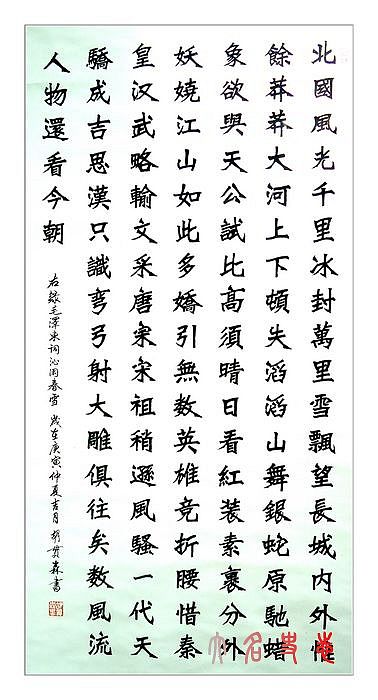 北國風光千里冰封萬里雪飄望長城内外惟
餘莽莽大河上下頓失滔滔山舞銀蛇原馳蜡
象欲與天公試比高須晴日看紅装素裹分外
妖嬈江山如此多嬌引無数英雄竞折腰惜秦
皇汉武略輸文采唐宗宋祖稍遜風騷一代天
驕成吉思漢只識彎弓射大雕俱往矣数風流
人物還看今朝
右錄毛澤东词沁园春雪 歲在庚寅仲夏吉月 胡貴森書